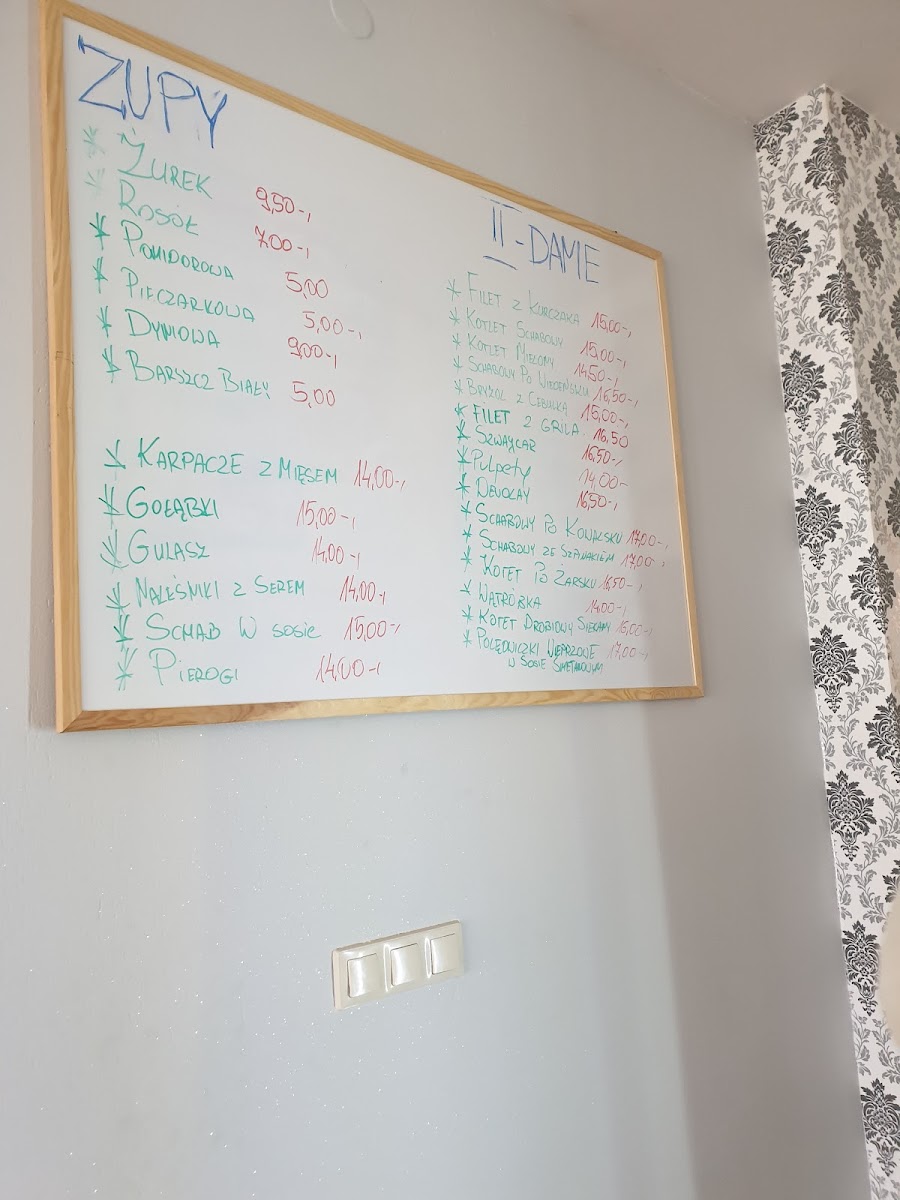 ZUPY
* ŻUREK 9,50-,
* ROSÓŁ 7,00-,
* POMIDOROWA 5,00
* PIECZARKOWA 5,00-,
* DYNIOWA 9,00-,
* BARSZCZ BIAŁY 5,00
* KARPACZE Z MIĘSEM 14,00-,
* GOŁĄBKI 15,00-,
* GULASZ 14,00-,
* NALEŚNIKI Z SEREM 14,00-,
* SCHAB W SOSIE 15,00-,
* PIEROGI 14,00-,
II-DANIE
* FILET Z KURCZAKA 15,00-,
* KOTLET SCHABOWY 15,00-,
* KOTLET MIELONY 14,50-,
* SCHABOWY PO WIEDEŃSKU 16,50-,
* BRYZOL Z CEBULKĄ 15,00-,
* FILET Z GRILA 16,50
* SZWAJCAR 16,50-,
* PULPETY 14,00-
* DEVOLAY 16,50-,
* SCHABOWY PO KOWALSKU 17,00-,
* SCHABOWY ZE SZPINAKIEM 17,00-,
* KOTET PO ŻARSKU 16,50-,
* WĄTRÓBKA 14,00-,
* KOTET DROBIOWY SIEKANY 15,00-,
* POLĘDWICZKI WIEPRZOWE 17,00-,
W SOSIE ŚMIETANOWYM